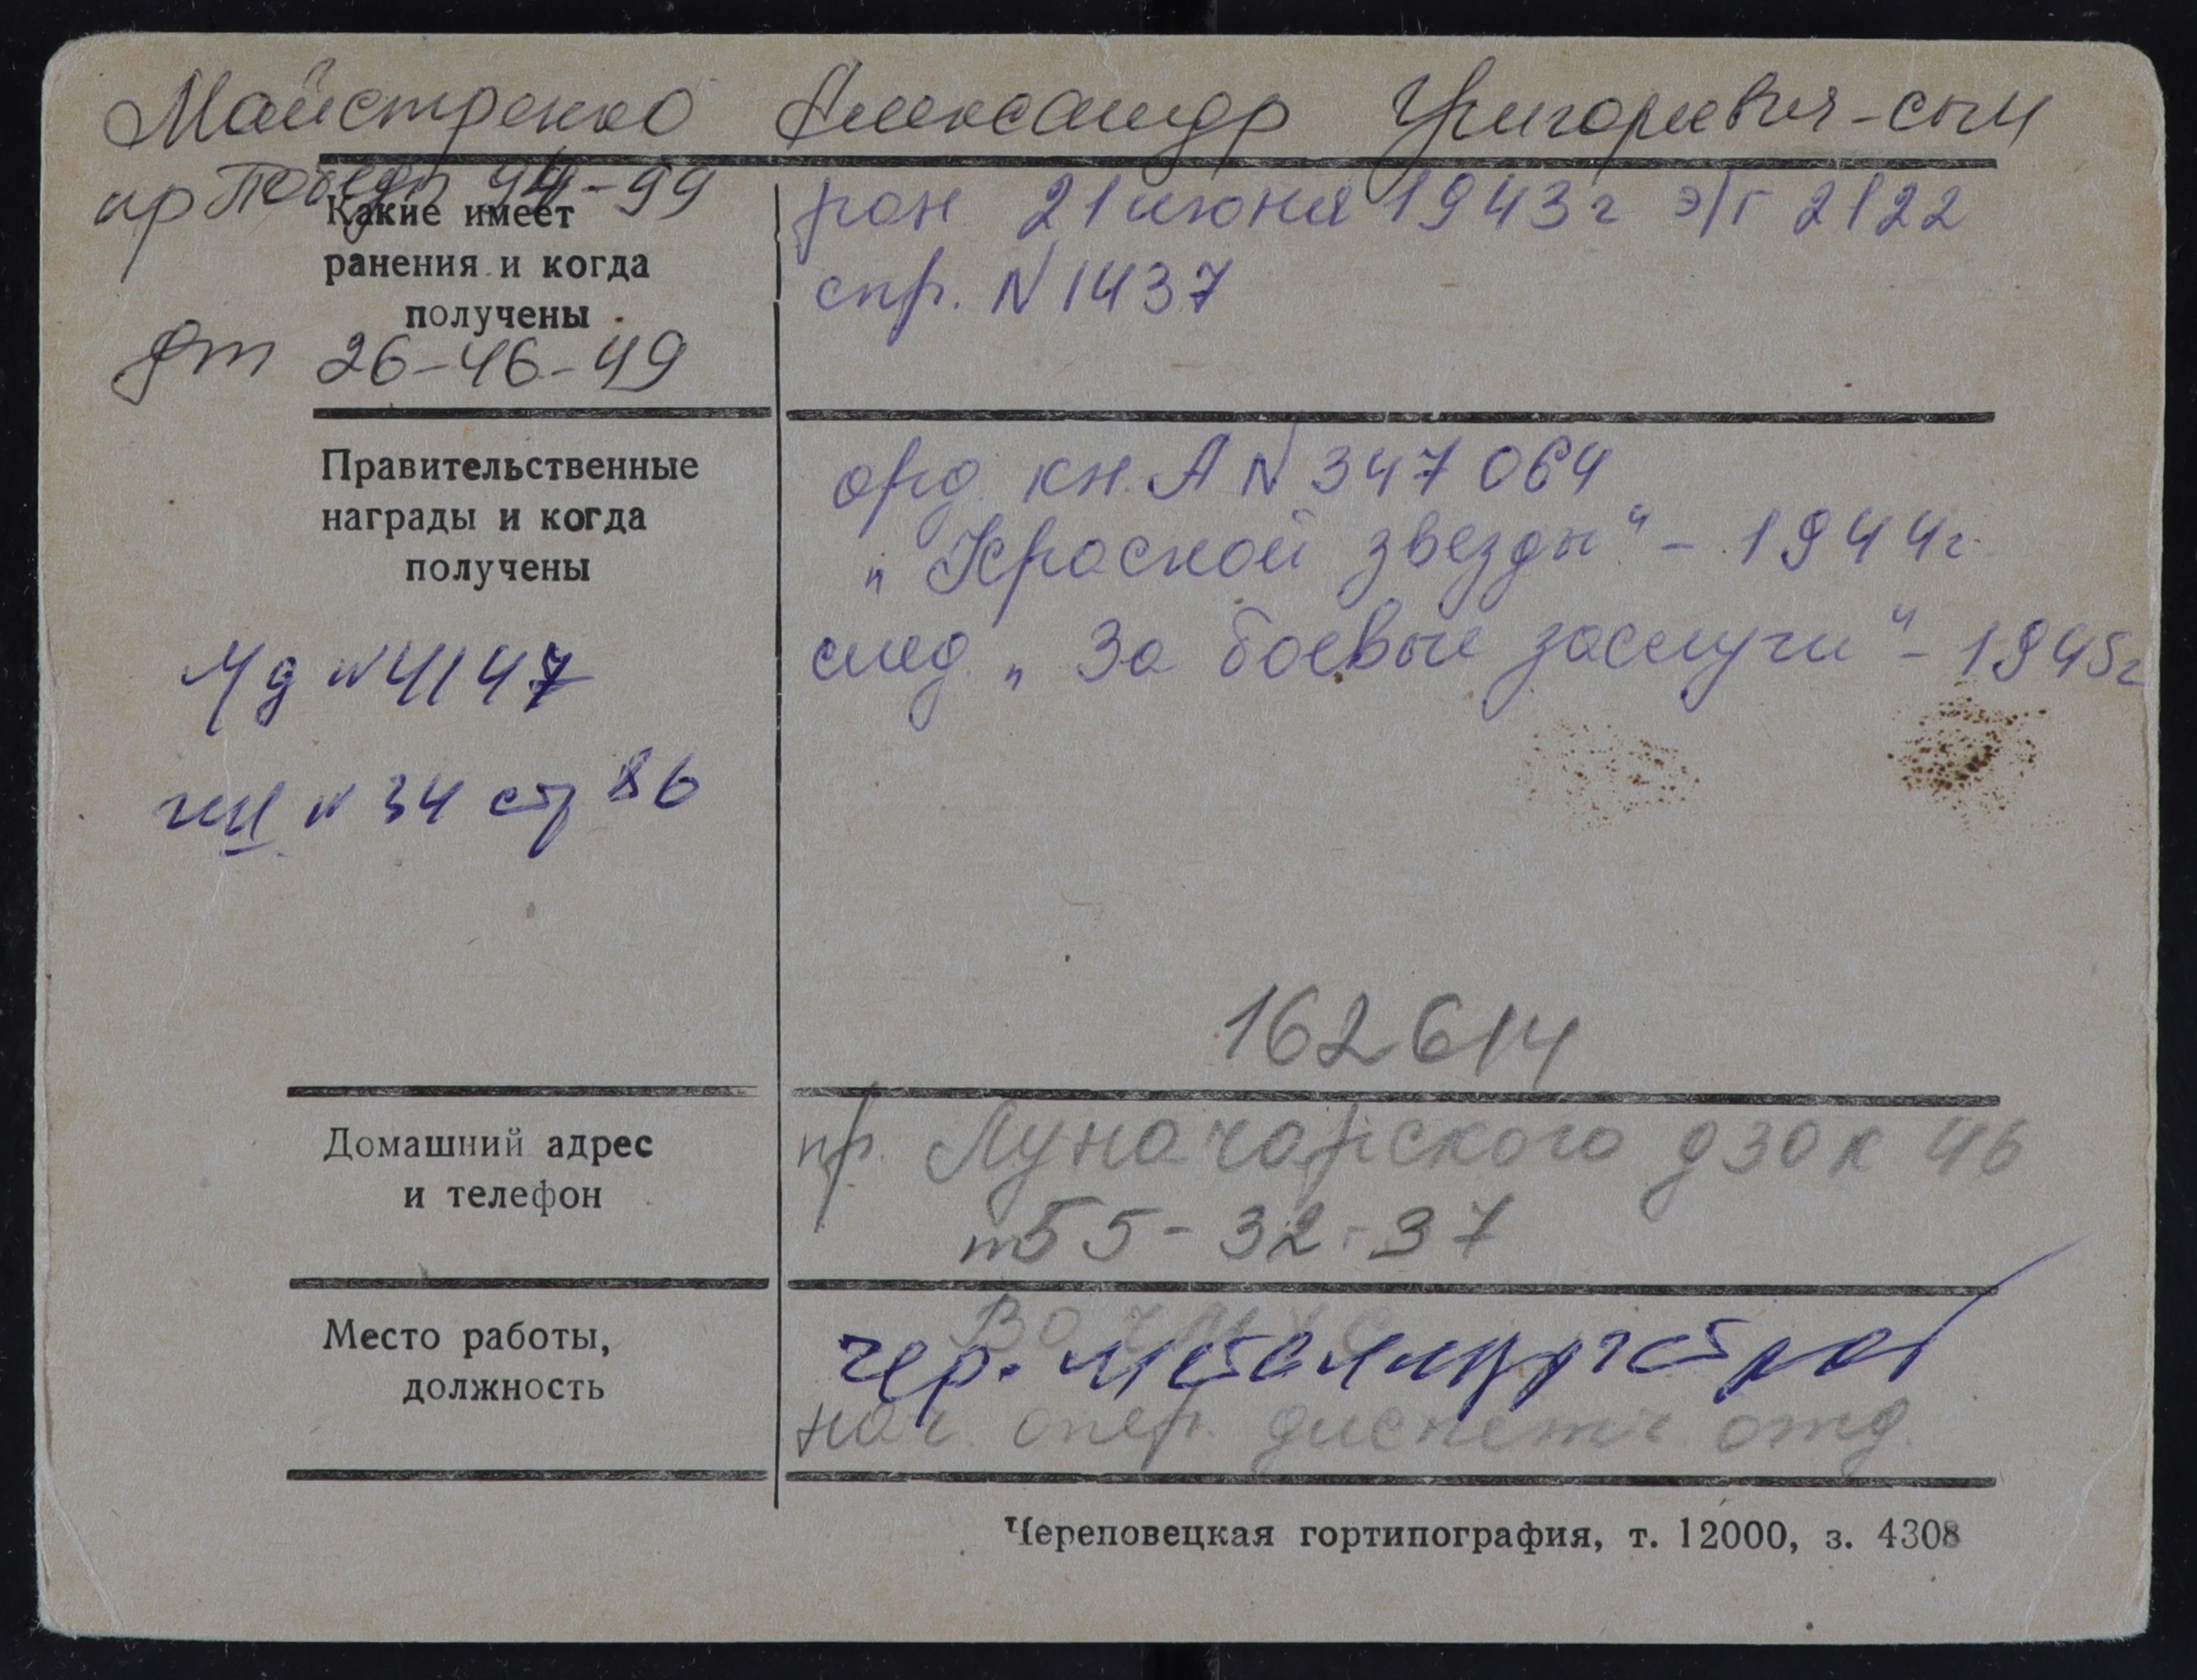 Майстренко Александр Григорьевич-сын
пр Победы 94-99
Какие имеет
ранения и когда
получены
ран 21 июня 1943г э/г 2122
спр. N1437
дт 26-46-49
Правительственные
награды и когда
получены
орд. кн. А N 347064
„Красной звезды" - 1944г
след. „За боевые заслуги" - 1945г
Уд N4147
кн N 34 стр 86
162614
Домашний адрес
и телефон
пр. Луначарского д 30 к 46
т 55-32-37
Место работы,
должность
чер. металлургстрой
нач. опер. диспетч. отд.
Череповецкая гортипография, т. 12000, з. 4308